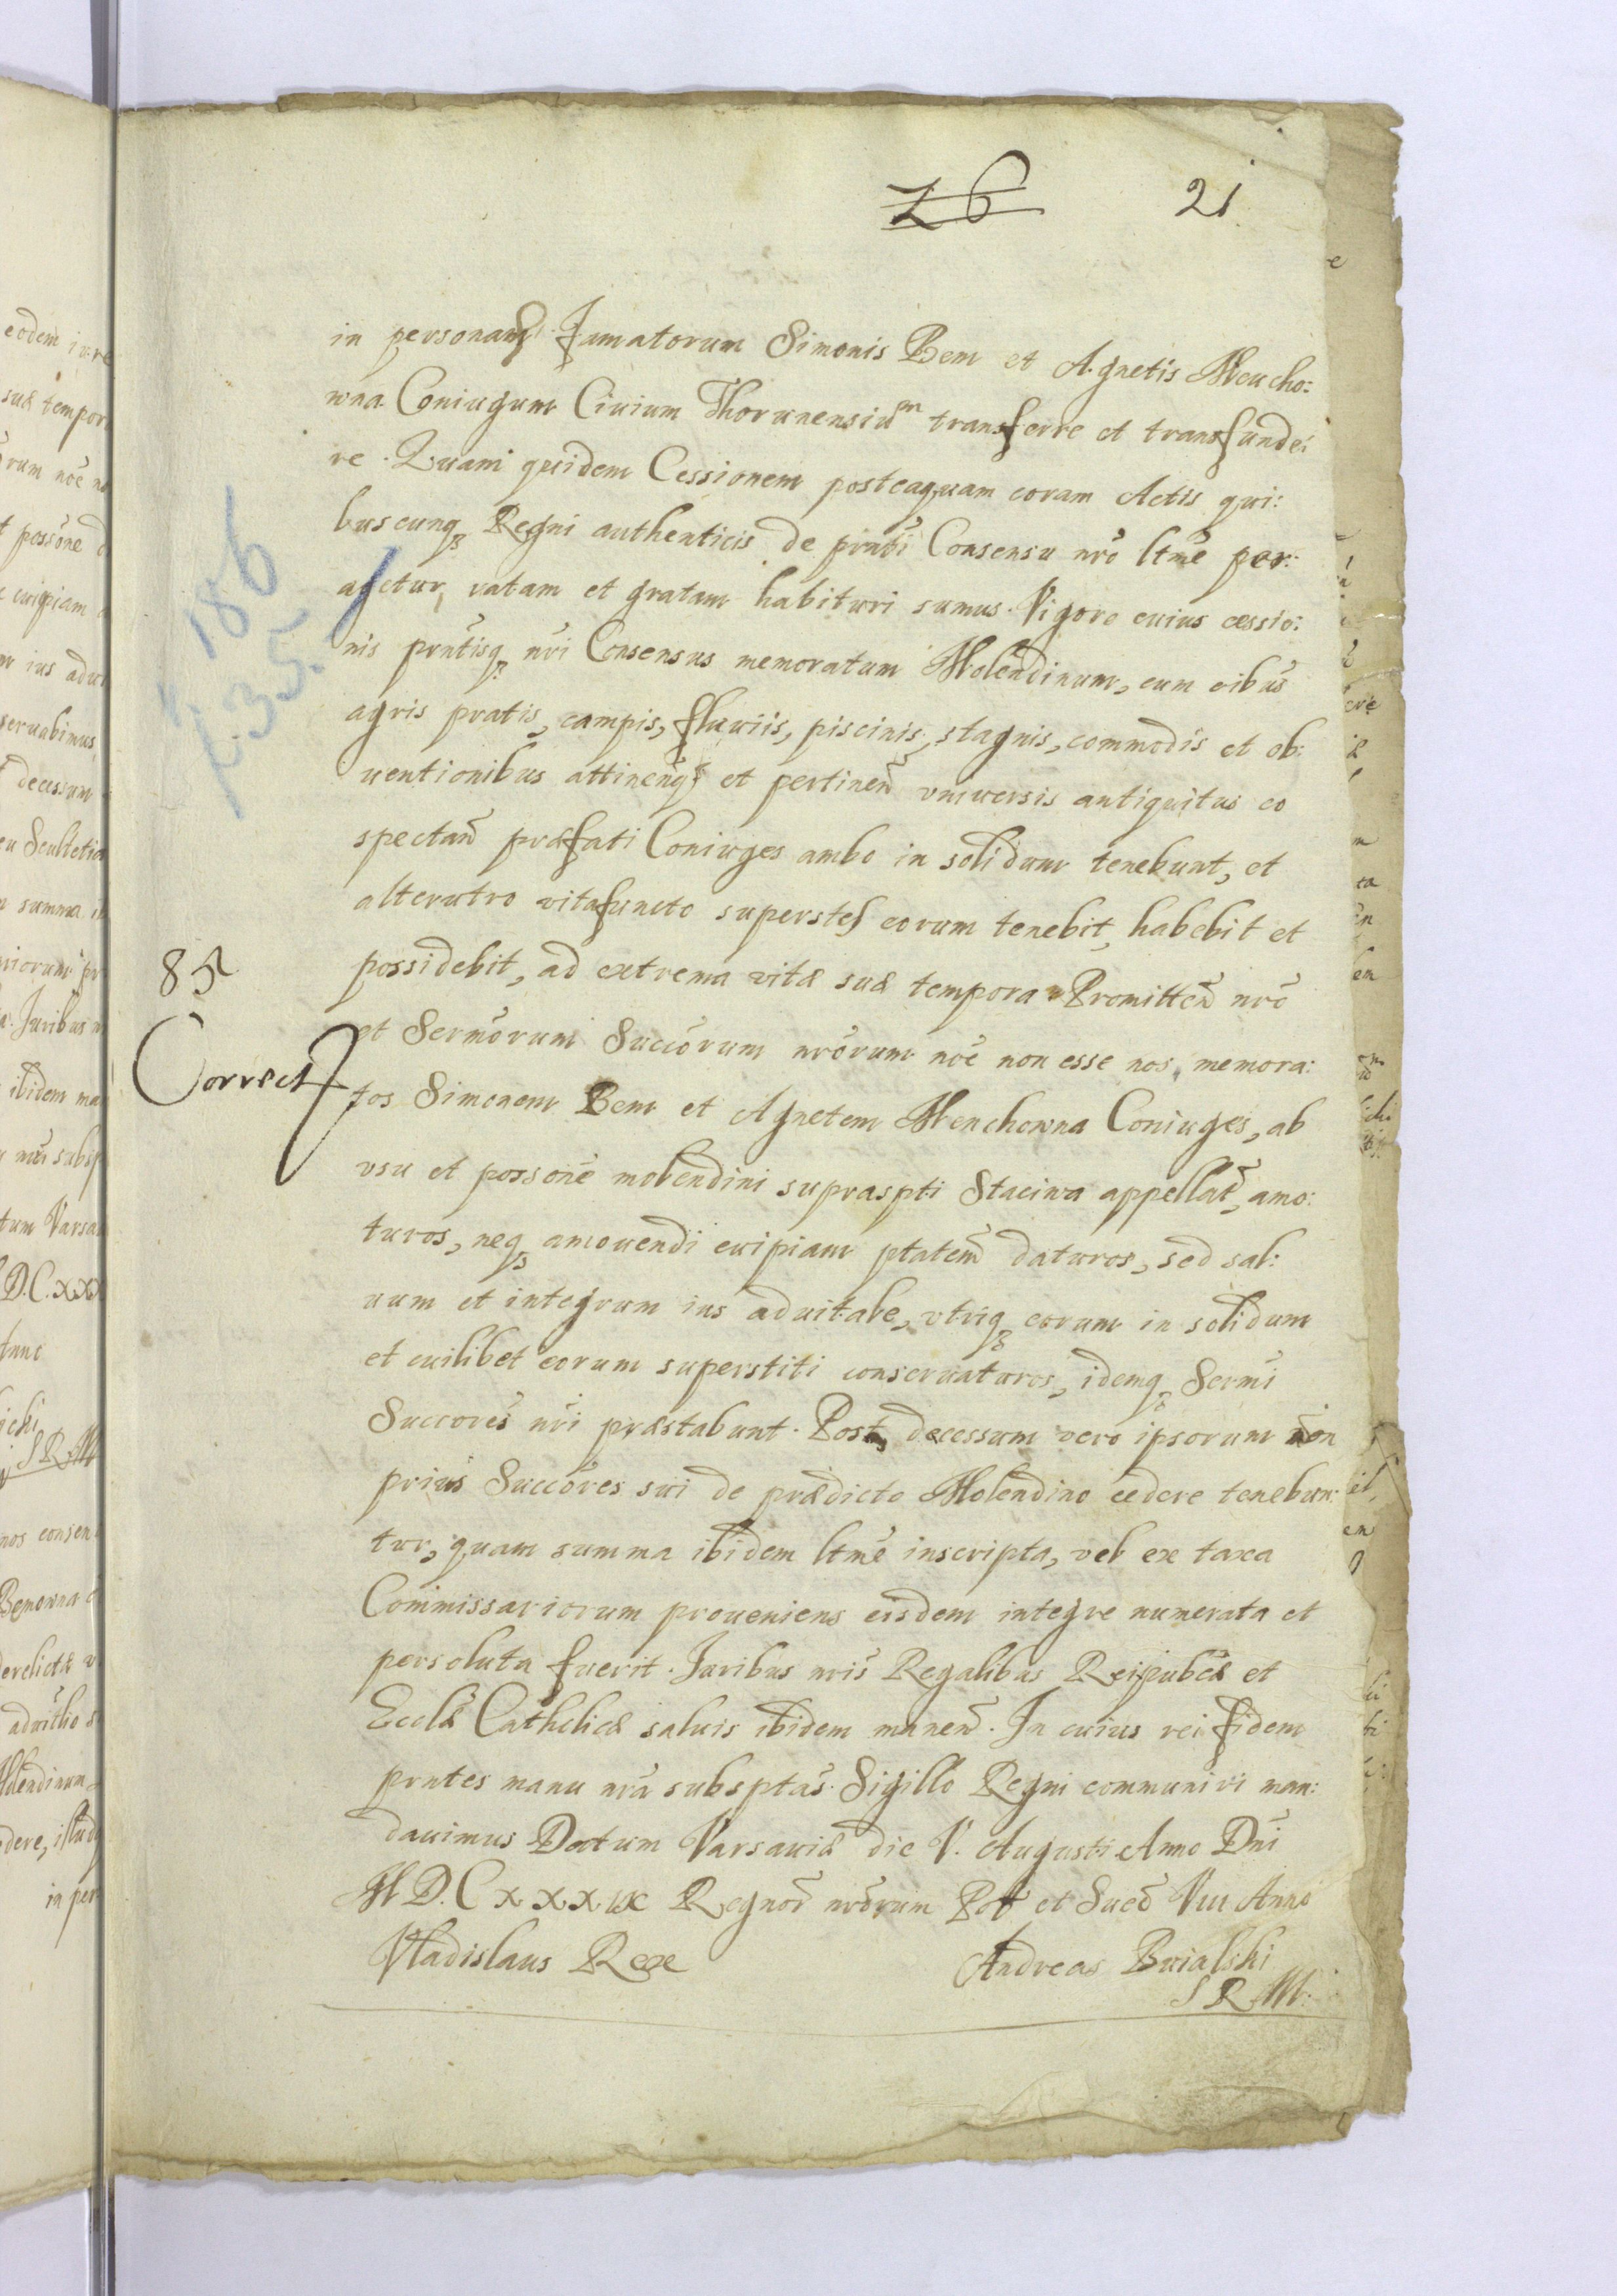 26 21
in personam Famatorum Simonis Bem et Agnetis Mencho:
wna Coniugum Ciuium Thorunensium transferre et transfunde:
re. Quam quidem Cessionem posteaquam coram Actis qui:
buscunq Regni authenticis de pnti Consensu nro ltme per:
agetur, ratam et gratam habituri sumus. Vigore cuius cessio:
nis pntisq nri Consensus memoratum Molendinum, cum oibus
agris pratis, campis, fluuiis, piscinis, stagnis, commodis et ob:
uentionibus attinen et pertinen vniuersis antiquitus eo
spectan præfati Coniuges ambo in solidum tenebunt, et
alterutro vitafuncto superstes eorum tenebit, habebit et
possidebit, ad extrema vitæ suæ tempora Promitten nro
et Sermorum Succorum nrorum noe non esse nos, memora:
tos Simonem Bem et Agnetem Menchowna Coniuges, ab
vsu et possone molendini supraspti Staciwa appellat, amo:
turos, neq amouendi cuipiam ptatem daturos, sed sal:
uum et integrum ius aduitale, vtriq eorum in solidum
et cuilibet eorum superstiti conseruaturos, idemq Sermi
Succores nri præstabunt. Post decessum vero ipsorum non
prius Succores sui de prædicto Molendino cedere tenebun:
tur, quam summa ibidem ltme inscripta, vel ex taxa
Commissariorum proueniens eisdem integre numerata et
persoluta fuerit. Juribus nris Regalibus Reipubcæ et
Ecclæ Catholicæ saluis ibidem manen. In cuius rei fidem
pntes manu nra subsptas. Sigillo Regni communiri man:
dauimus Datum Varsauiæ die V. Augusti Anno Dni
M D.C xxxix Regnor nrorum Pol et Sued VIII Anno
Vladislaus Rex Andreas
S R M.
186
f. 35.
85
Correct